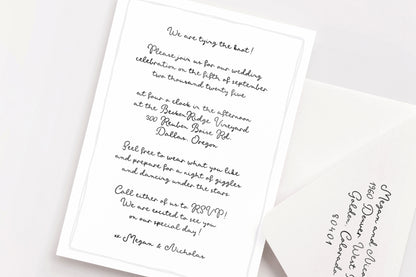 We are tying the knot!
Please join us for our wedding
celebration on the fifth of september
two thousand twenty five
at four o clock in the afternoon
at the BeckenRidge Vineyard
300 Reuben Boise Rd.
Dallas, Oregon
Feel free to wear what you like
and prepare for a night of giggles
and dancing under the stars
Call either of us to RSVP!
We are excited to see you
on our special day!
xx Megan & Nicholas
Megan and
1960 Denver West
Golden Colorado
80401